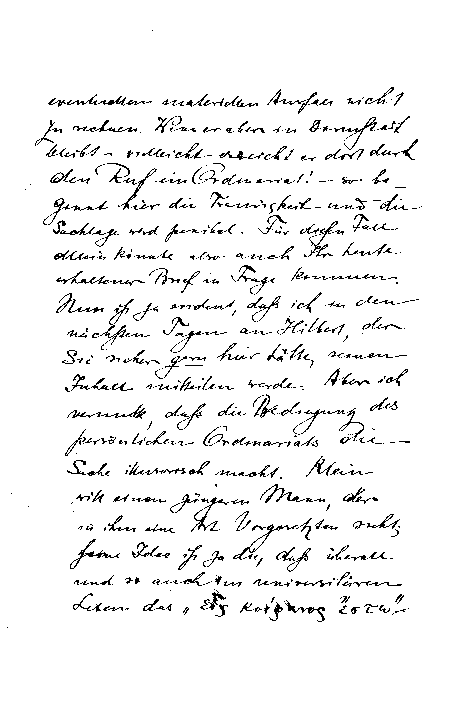 eventuellen materiellen Ausfall nicht
zu rechnen. Wenn er aber in Darmstadt
bleibt – vielleicht erreicht er dort durch
den Ruf ein Ordinariat! – so be-
ginnt hier die Traurigkeit und die
Sachlage wird penibel. Für diesen Fall
allein könnte also auch Ihr heute
erhaltener Brief in Frage kommen.
Nun ist ja evident, daß ich in den
nächsten Tagen an Hilbert, der
Sie sicher gern hier hätte, seinen
Inhalt mitteilen werde. Aber ich
vermute, daß die Bedingung des
persönlichen Ordinariats die
Sache illusorisch macht. Klein
will einen jüngeren Mann, der
in ihm eine Art Vorgesetzten sieht,
seine Idee ist ja die, daß überall
und so auch im universitären
Leben das „Εἷς κοίρανος ἔστω“